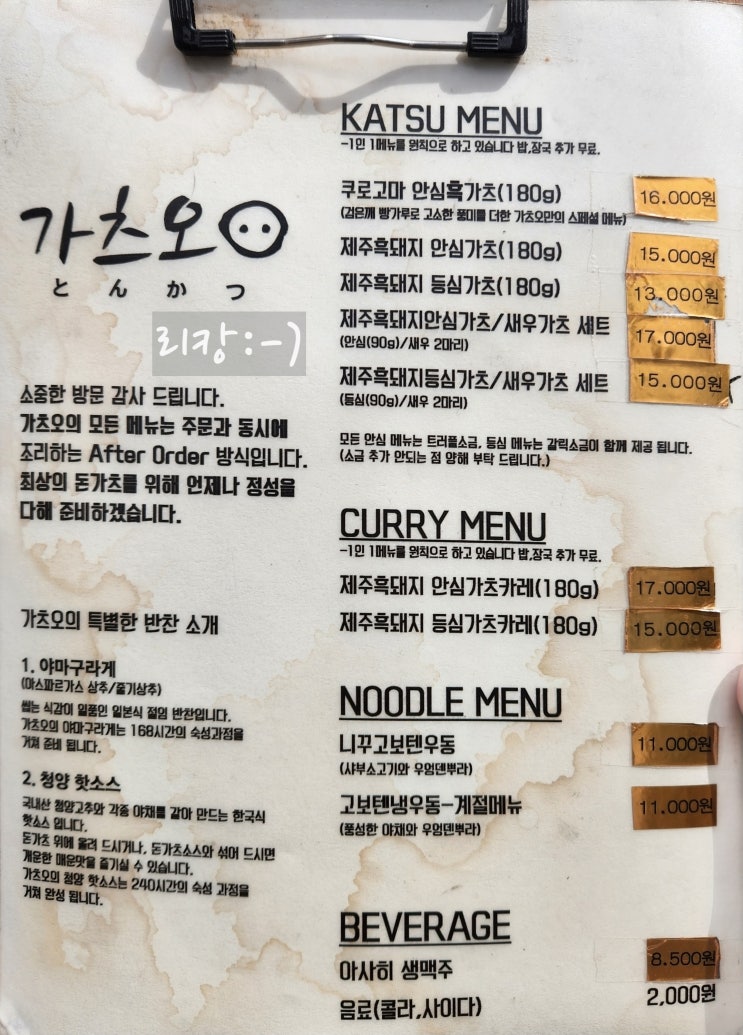 가츠오
とんかつ
리캉:-)
소중한 방문 감사 드립니다.
가츠오의 모든 메뉴는 주문과 동시에
조리하는 After Order 방식입니다.
최상의 돈가츠를 위해 언제나 정성을
다해 준비하겠습니다.
가츠오의 특별한 반찬 소개
1. 야마구라게
(아스파르가스 상추/줄기상추)
씹는 식감이 일품인 일본식 절임 반찬입니다.
가츠오의 야마구라게는 168시간의 숙성과정을
거쳐 준비 됩니다.
2. 청양 핫소스
국내산 청양고추와 각종 야채를 갈아 만드는 한국식
핫소스 입니다.
돈가츠 위에 올려 드시거나, 돈가츠소스와 섞어 드시면
개운한 매운맛을 즐기실 수 있습니다.
가츠오의 청양 핫소스는 240시간의 숙성 과정을
거쳐 완성 됩니다.
KATSU MENU
-1인 1메뉴를 원칙으로 하고 있습니다 밥,장국 추가 무료.
쿠로고마 안심흑가츠(180g) 16.000원
(검은깨 빵가루로 고소한 풍미를 더한 가츠오만의 스페셜 메뉴)
제주흑돼지 안심가츠(180g) 15.000원
제주흑돼지 등심가츠(180g) 13.000원
제주흑돼지안심가츠/새우가츠 세트 17.000원
(안심(90g)/새우 2마리)
제주흑돼지등심가츠/새우가츠 세트 15.000원
(등심(90g)/새우 2마리)
모든 안심 메뉴는 트러플소금, 등심 메뉴는 갈릭소금이 함께 제공 됩니다.
(소금 추가 안되는 점 양해 부탁 드립니다.)
CURRY MENU
-1인 1메뉴를 원칙으로 하고 있습니다 밥,장국 추가 무료.
제주흑돼지 안심가츠카레(180g) 17.000원
제주흑돼지 등심가츠카레(180g) 15.000원
NOODLE MENU
니꾸고보텐우동 11.000원
(샤부소고기와 우엉덴뿌라)
고보텐냉우동-계절메뉴 11.000원
(풍성한 야채와 우엉덴뿌라)
BEVERAGE
아사히 생맥주 8.500원
음료(콜라,사이다) 2,000원